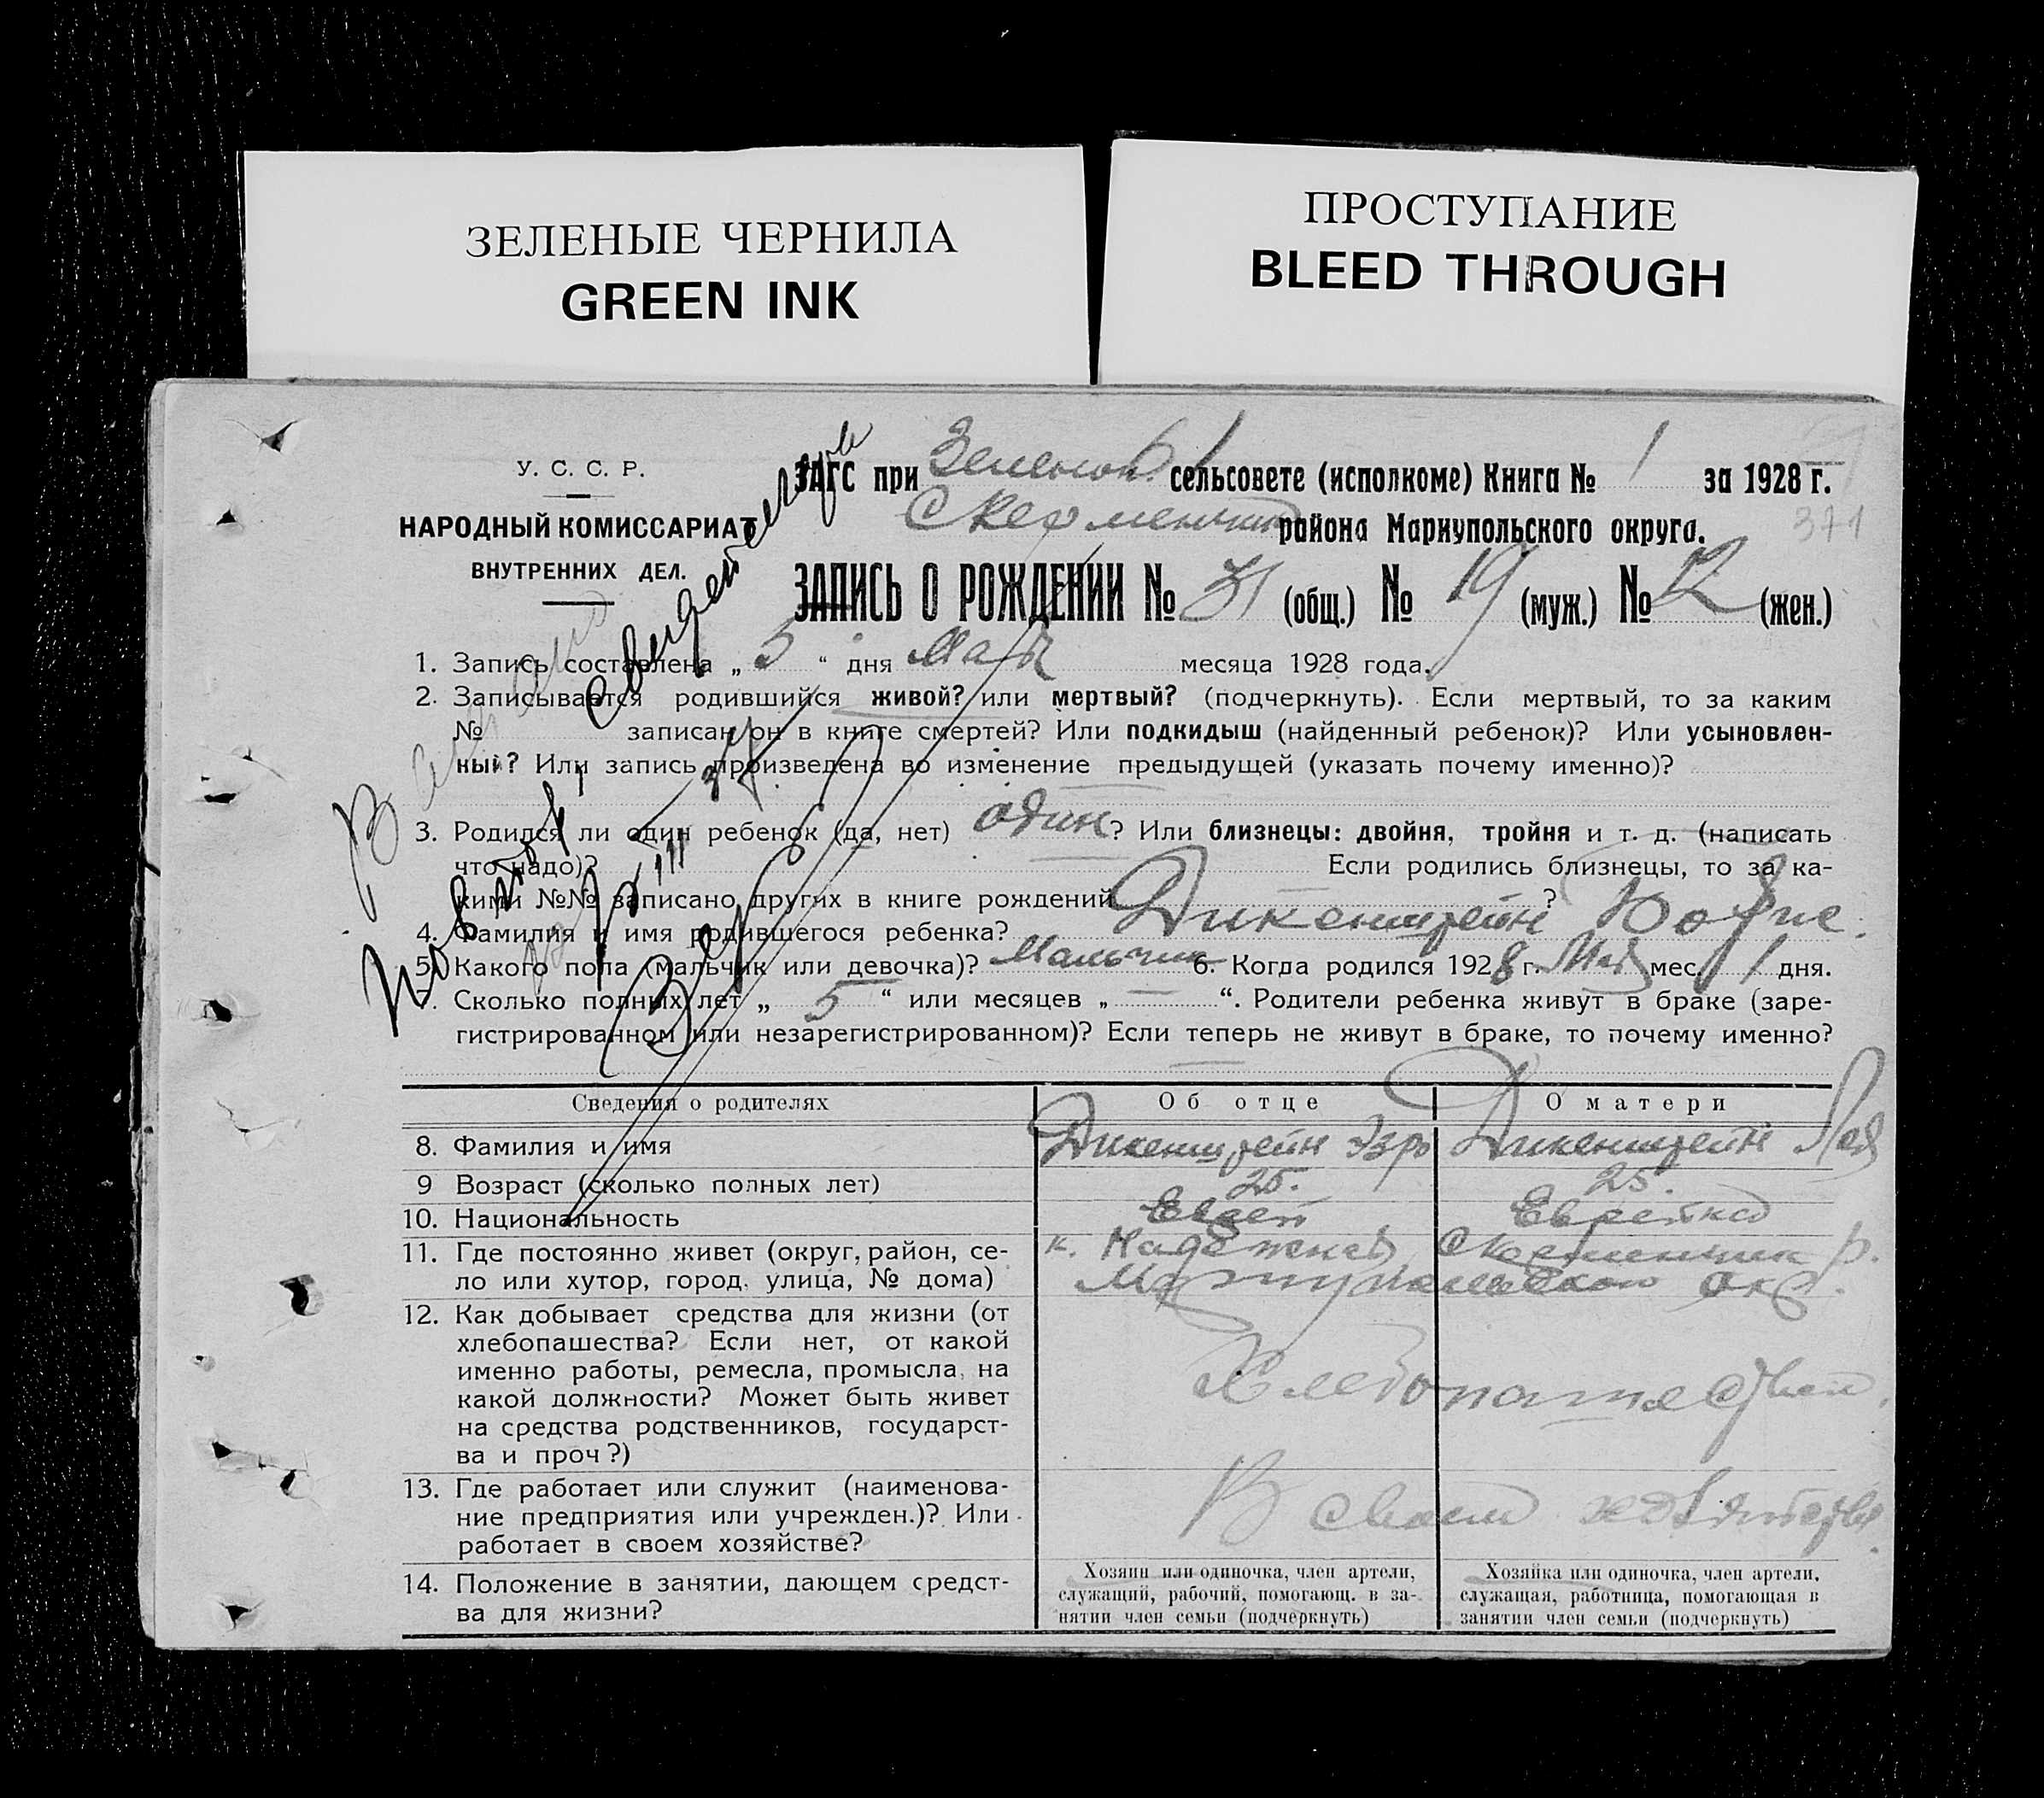 ЗЕЛЕНЫЕ ЧЕРНИЛА
GREEN INK
ПРОСТУПАНИЕ
BLEED THROUGH
У. С. С. Р.
НАРОДНЫЙ КОМИССАРИАТ
ВНУТРЕННИХ ДЕЛ.
ЗАГС при Зеленоп. сельсовете (исполкоме) Книга № 1 за 1928 г.
района Мариупольского округа.
371
ЗАПИСЬ О РОЖДЕНИИ № 31 (общ.) № 19 (муж.) № 12 (жен.)
1. Запись составлена „ 5 “ дня Мая месяца 1928 года.
2. Записывается родившийся живой? или мертвый? (подчеркнуть). Если мертвый, то за каким
№ записан он в книге смертей? Или подкидыш (найденный ребенок)? Или усыновлен-
ный? Или запись произведена во изменение предыдущей (указать почему именно)?
3. Родился ли один ребенок (да, нет) один ? Или близнецы: двойня, тройня и т. д. (написать
что надо)? Если родились близнецы, то за ка-
кими №№ записано других в книге рождений ?
4. Фамилия и имя родившегося ребенка? Дикенштейн
5. Какого пола (мальчик или девочка)? Мальчик 6. Когда родился 1928 г. Мая мес. 1 дня.
7. Сколько полных лет „ 5 “ или месяцев „ — “. Родители ребенка живут в браке (заре-
гистрированном или незарегистрированном)? Если теперь не живут в браке, то почему именно?
Повторн. свидетельство
Сведения о родителях Об отце О матери
8. Фамилия и имя Дикенштейн Эзра Дикенштейн Лея
9 Возраст (сколько полных лет) 25. 25.
10. Национальность Еврей Еврейка
11. Где постоянно живет (округ, район, се- к. Надежная р.
ло или хутор, город, улица, № дома) Мариупольского окр.
12. Как добывает средства для жизни (от
хлебопашества? Если нет, от какой
именно работы, ремесла, промысла, на
какой должности? Может быть живет
на средства родственников, государст-
ва и проч?)
Хлебопашеством
13. Где работает или служит (наименова-
ние предприятия или учрежден.)? Или
работает в своем хозяйстве?
В своем хозяйстве
14. Положение в занятии, дающем средст-
ва для жизни?
Хозяин или одиночка, член артели,
служащий, рабочий, помогающ. в за-
нятии член семьи (подчеркнуть)
Хозяйка или одиночка, член артели,
служащая, работница, помогающая в
занятии член семьи (подчеркнуть)